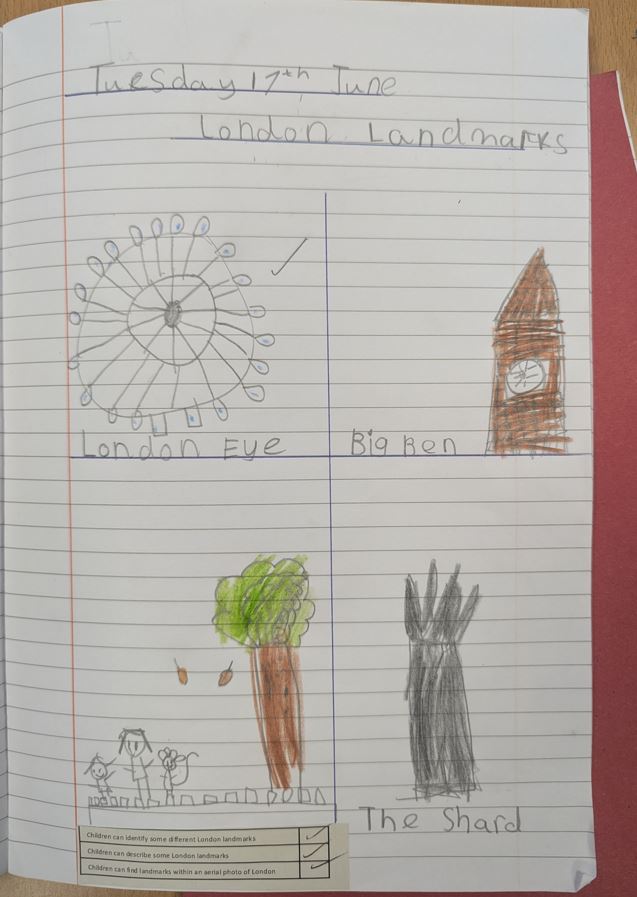 Tuesday 17th June
London Landmarks
London Eye
Big Ben
The Shard
Children can identify some different London landmarks
Children can describe some London landmarks
Children can find landmarks within an aerial photo of London